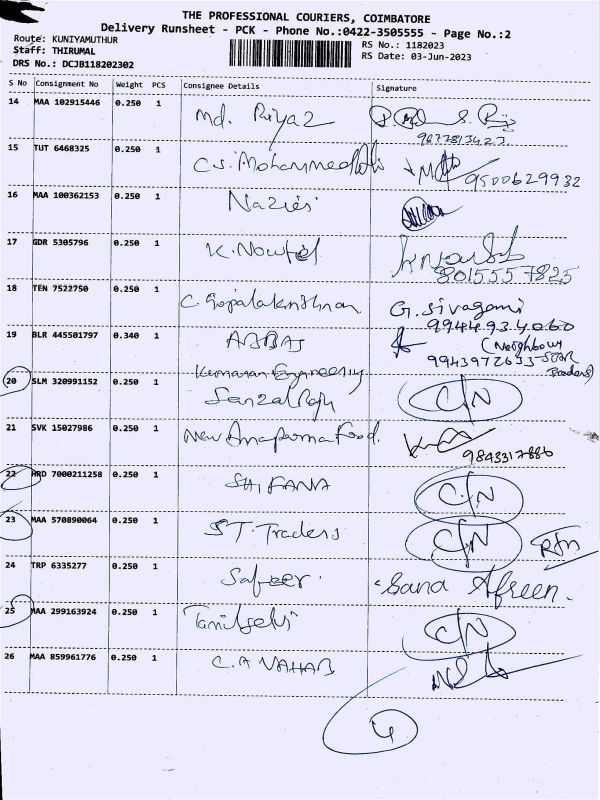 THE PROFESSIONAL COURIERS, COIMBATORE
Delivery Runsheet - PCK - Phone No.:0422-3505555 - Page No.:2
Route: KUNIYAMUTHUR
RS No.: 1182023
Staff: THIRUMAL
RS Date: 03-Jun-2023
DRS No.: DCJB118202302
S No Consignment No Weight PCS Consignee Details Signature
14 MAA 102915446 0.250 1 Md. Riyaz
15 TUT 6468325 0.250 1 C.S. Mohammed 9500629932
16 MAA 100362153 0.250 1
17 GDR 5305796 0.250 1 K. Nowfel
8015557825
18 TEN 7522750 0.250 1 C. Gopalakrishnan G. Sivagami
9944934060
19 BLR 445501797 0.340 1 ABBAS (Neighbour
9943972633
Traders)
20 SLM 320991152 0.250 1 Kumaran Engineering C/N
21 SVK 15027986 0.250 1 New Annapurna Food.
9843317886
22 HRD 7000211258 0.250 1 SHIFANA C/N
23 MAA 570890064 0.250 1 S.T. Traders C/N
24 TRP 6335277 0.250 1 Safeer. Sana Afreen.
25 MAA 299163924 0.250 1 Tamilselvi C/N
26 MAA 859961776 0.250 1 C.A VAHAB